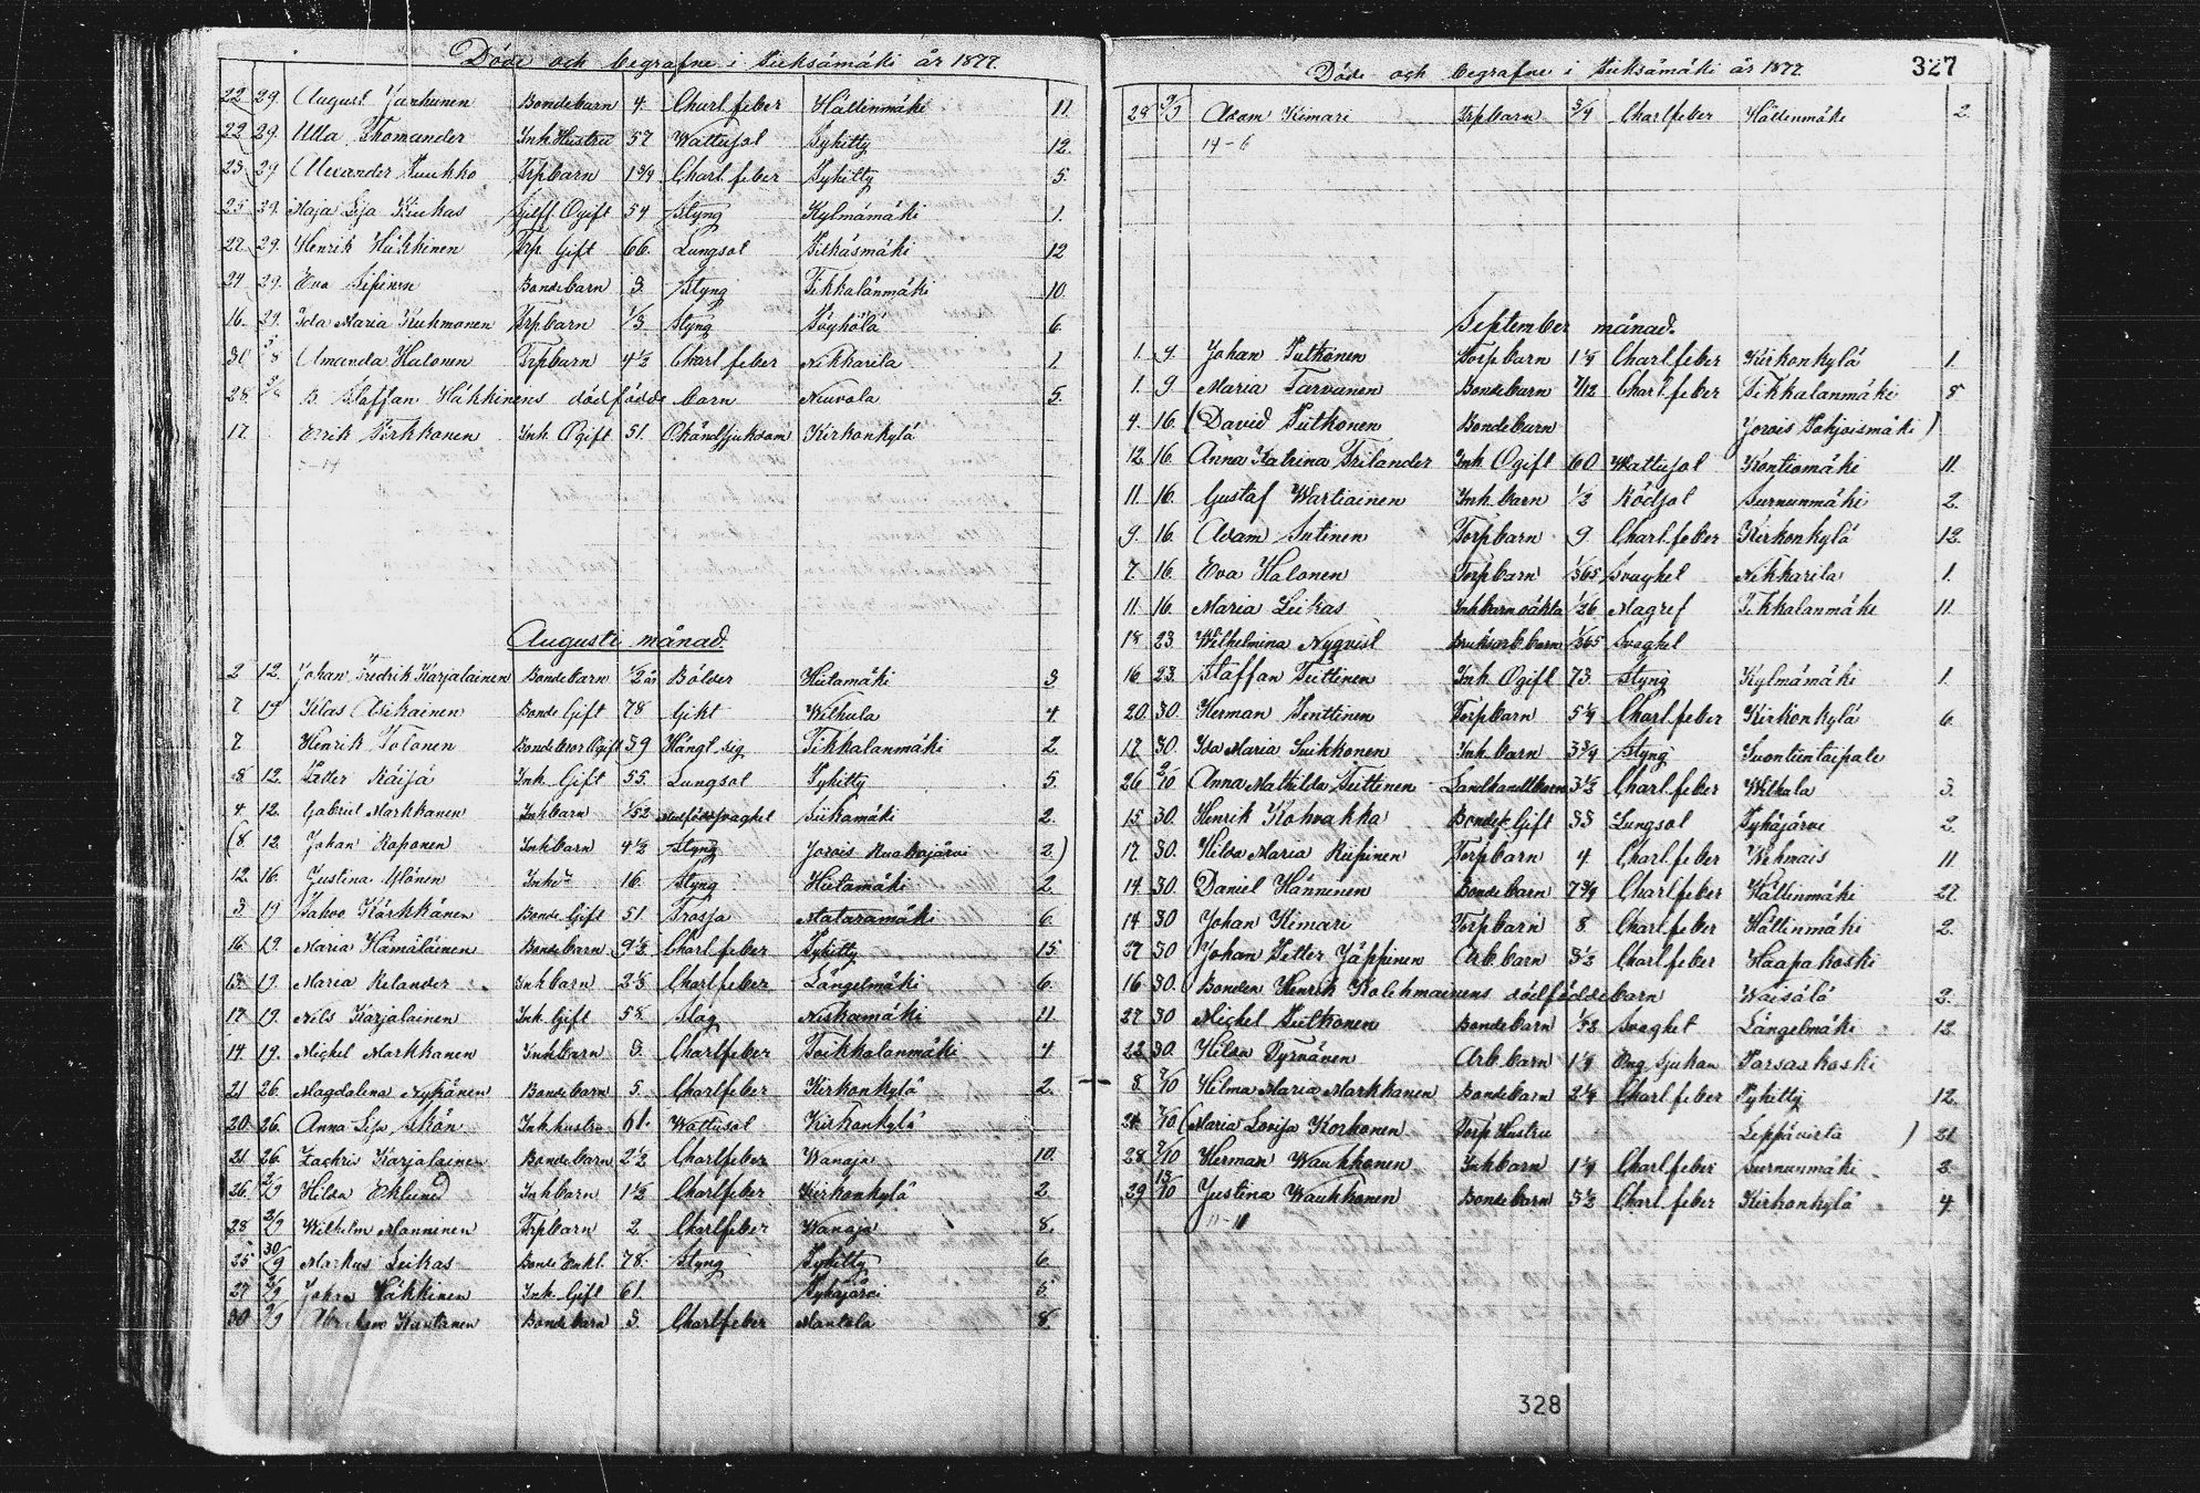 Döde och begrafne i Pieksämäki år 1877.
22. 29. August Janhunen Bondebarn 4. Charl. feber Hällinmäki 11.
22 29. Ulla Thomander Inh. Hustru 57 Wattusot Pykitty 12.
23. 29 Alexander Puukko Trp barn 1 3/4 Charl. feber Pykitty 5.
25. 29. Maja Lisa Kiukas Ogift 54 Styng Kylmämäki 1.
22. 29. Henrik Häkkinen Trp. Gift 66. Lungsot 12
24 29. Eva Bondebarn 3. Styng Tikkalanmäki 10.
16. 29. Ida Maria Kukmonen Trp barn 1/3 Styng Pöyhölä 6.
30 5/8 Amanda Halonen Trp barn 4 1/2 Charl. feber Nikkarila 1
28. 5/8 B. Staffan Häkkinens dödfödde barn Neuvola 5.
17. Erik Pirkkanen Inh. Ogift 51. Okänd sjukdom Kirkonkylä
Augusti månad.
2 12. Johan Fredrik Karjalainen Bondebarn 1/2 år Bölder Hiitamäki 3
7 19 Klas Asikainen Bonde Gift 78 Gikt Wilhula 4.
7 Henrik Tolonen Bondebror Ogift 39 Hängt sig Tikkalanmäki 2.
8. 12. Petter Räisä Inh. Gift 55. Lungsot Pykitty 5.
4. 12. Gabriel Markkanen Inh barn 1/52 svaghet Siikamäki 2.
(8 12. Johan Roponen Inh barn 4 1/2 Styng Jorois 2.)
12. 16. Justina Ylönen Inh 16. Styng Hiitamäki 2.
3. 19 Pahvo Kärkkänen Bonde Gift 51. Frossa Mataramäki 6.
16. 19. Maria Hämäläinen Bondebarn 9 1/2 Charl. feber Pykitty 15.
13. 19. Maria Relander Inh barn 2 1/3 Charl feber Längelmäki 6.
17 19. Nils Karjalainen Inh. Gift 58. Slag Niskamäki 11.
14. 19. Michel Markkanen Inh barn 3. Charl feber Toikkalanmäki 4
21 26. Magdalena Nykänen Bondebarn 5. Charlfeber Kirkonkylä 2.
20. 26. Anna Lisa Skön Inh hustru 61. Wattusot Kirkonkylä
21 26. Zachris Karjalainen Bondebarn 2 1/2 Charlfeber Wanaja 10.
26. 2/9 Hilda Eklund Inh barn 1 1/2 Charlfeber Kirkonkylä 2
28 2/9 Wilhelm Manninen Trp barn 2 Charlfeber Wanaja 8.
25 30/9 Markus Leikas Bonde Enkl. 78. Styng Pykitty 6
27 2/9 Johan Häkkinen Inh. Gift 61. Pyhäjärvi 5.
30 9/9 Abraham Kautanen Bondebarn 3. Charlfeber Mantola 8.
Döde och begrafne i Pieksämäki år 1877.
327
29 9/9 Adam Kimari Trp barn 3/4 Charlfeber Hällinmäki 2.
14-6
September månad.
1. 9. Johan Putkonen Torp barn 1 1/4 Charl. feber Kirkonkylä 1.
1. 9. Maria Tarvanen Bondebarn 7/12 Charl. feber Tikkalanmäki 8
4. 16. (David Putkonen Bondebarn Jorois )
12 16. Anna Katrina Frilander Inh. Ogift 60 Wattusot Kontiomäki 11.
11. 16. Gustaf Wartiainen Inh. barn 1/2 Rödsot Surnumäki 2.
9. 16. Adam Sutinen Torp barn 9 Charl. feber Kirkonkylä 12.
7. 16. Eva Halonen Torp barn 1/365 Svaghet Nikkarila 1.
11. 16. Maria Leikas Inh barn oäkta 1/26 Magref Tikkalanmäki 11.
18. 23. Wilhelmina Nyqvist Bruksarb. barn 1/365 Svaghet
16 23. Staffan Teittinen Inh. Ogift 73 Styng Kylmämäki 1.
20. 30. Herman Penttinen Torp barn 5 1/4 Charl. feber Kirkonkylä 6.
17 30. Ida Maria Suikkonen Inh. barn 3 3/4 Styng Suontientaipale
26 2/10 Anna Mathilda Teittinen 3 1/2 Charl. feber Wilhula 3.
15 30. Henrik Kohvakka Gift 33 Lungsot Pyhäjärvi 2.
17 30. Hilda Maria Torp barn 4. Charl. feber Wehmais 11
14. 30. Daniel Hänninen Bondebarn 7 3/4 Charlfeber Hällinmäki 27
14 30 Johan Kimari Torp barn 8 Charlfeber Hällinmäki 2.
27 30 Johan Petter Jäppinen Arb. barn 3 1/2 Charlfeber Haapakoski
16 30. Bonden Henrik Kolehmainens dödföddebarn Waisälö 3.
27 30 Michel Putkonen Bondebarn 1/52 Svaghet Längelmäki 12.
22 30. Hilda Tyrvänen Arb. barn 1 1/4 Eng. sjukan Porsaskoski
8. 7/10 Hilma Maria Markkanen Bondebarn 2 1/4 Charl. feber Pykitty 12.
24 7/10 (Maria Lovisa Korhonen Torp Hustru Leppävirta ) 21
28 7/10 Herman Waukkonen Inh barn 1 1/4 Charl. feber Surnumäki 2.
29 15/10 Justina Waukkonen Bondebarn 3 1/2 Charl. feber Kirkonkylä 4
328